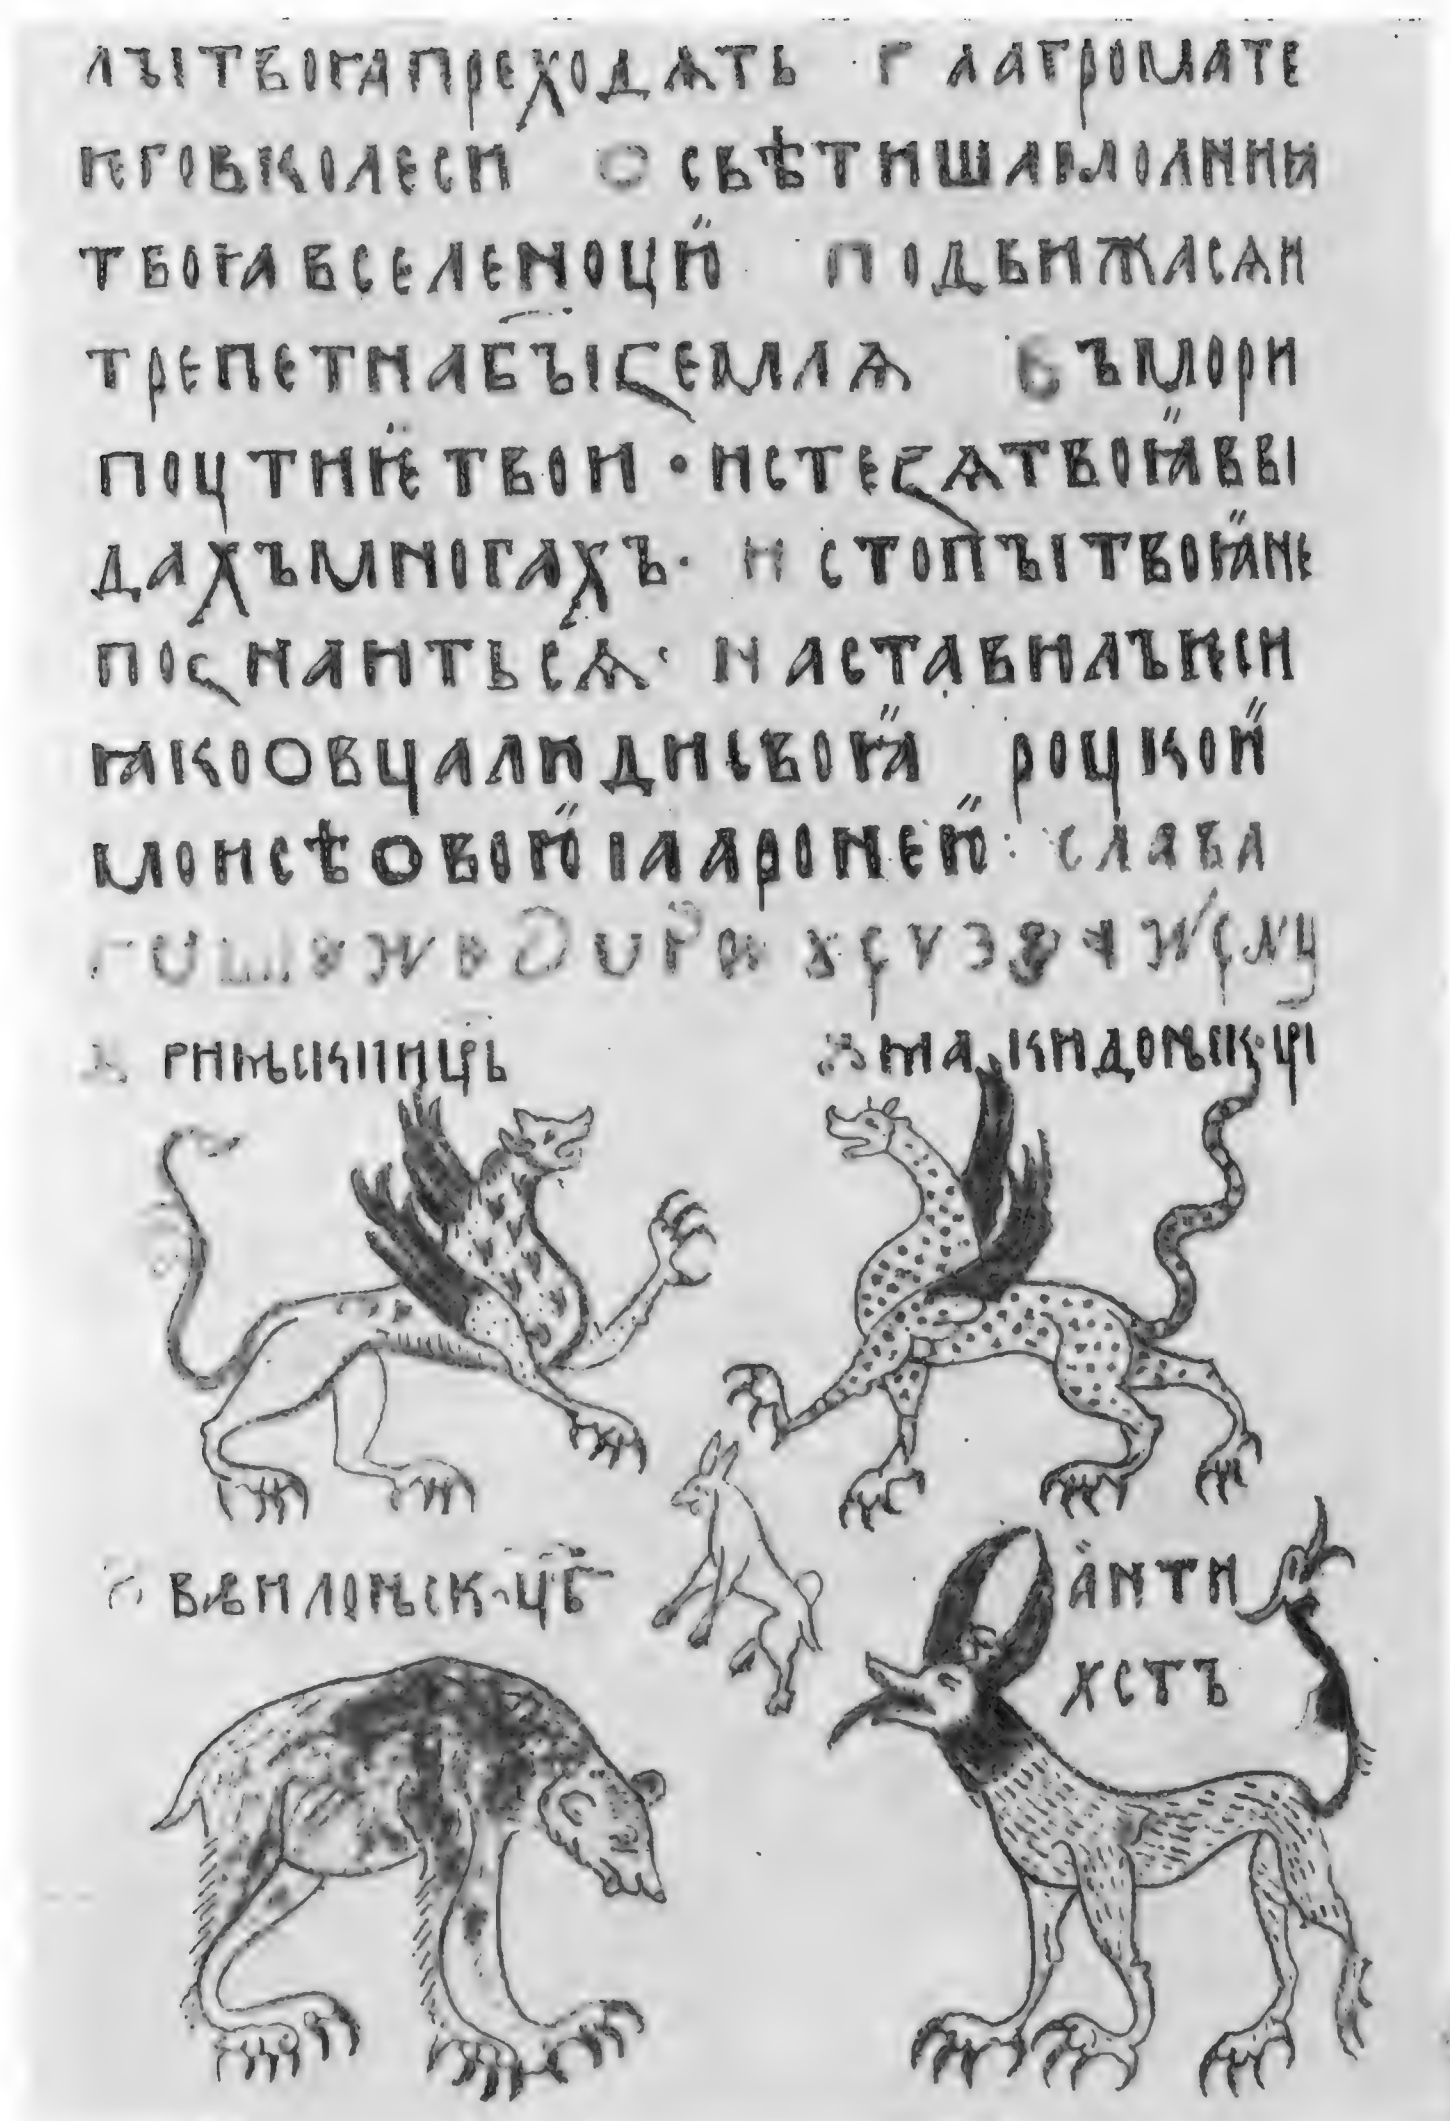 ЛЪІТВОꙖПРЕХОДѦТЬ · Г ЛАГРОМАТЕ
ѤГОВКОЛЕСИ О СВѢТИШАМОЛНИꙖ
ТВОꙖВСЕЛЕНОУЮ ПОДВИЖАСѦИ
ТРЕПЕТНАБЪІꙀЕМЛѦ ВЪМОРИ
ПОУТИѤТВОИ • ИСТЕꙀѦТВОꙖВВІ
ДАХЪМНОГАХЪ · И СТОПЪІТВОꙖНЕ
ПОꙀНАИТЬСѦ · НАСТАВИЛЪѤСИ
ꙖКООВЦАЛЮДИСВОꙖ РОУКОЮ
МОИСѢОВОЮІААРОНЕЮ : СЛАВА
РИМЬСКЪІИЦРЬ МАКИДОНЬСК·ЦРІ
ВАВИЛОНЬСК·ЦР
АНТИ
ХСТЪ